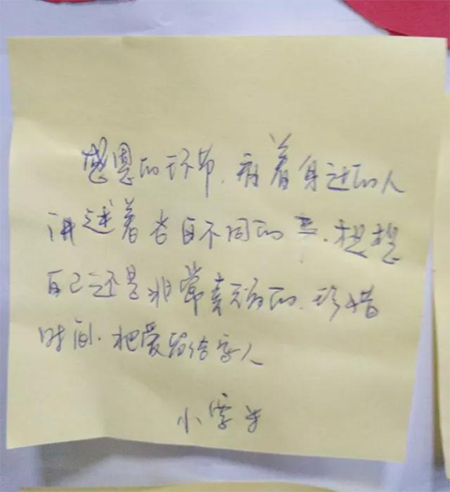 感恩的环节,看着身边的人
讲述着各自不同的 想想
自己还是非常幸福的,珍惜
时间.把爱留给家人
小雪